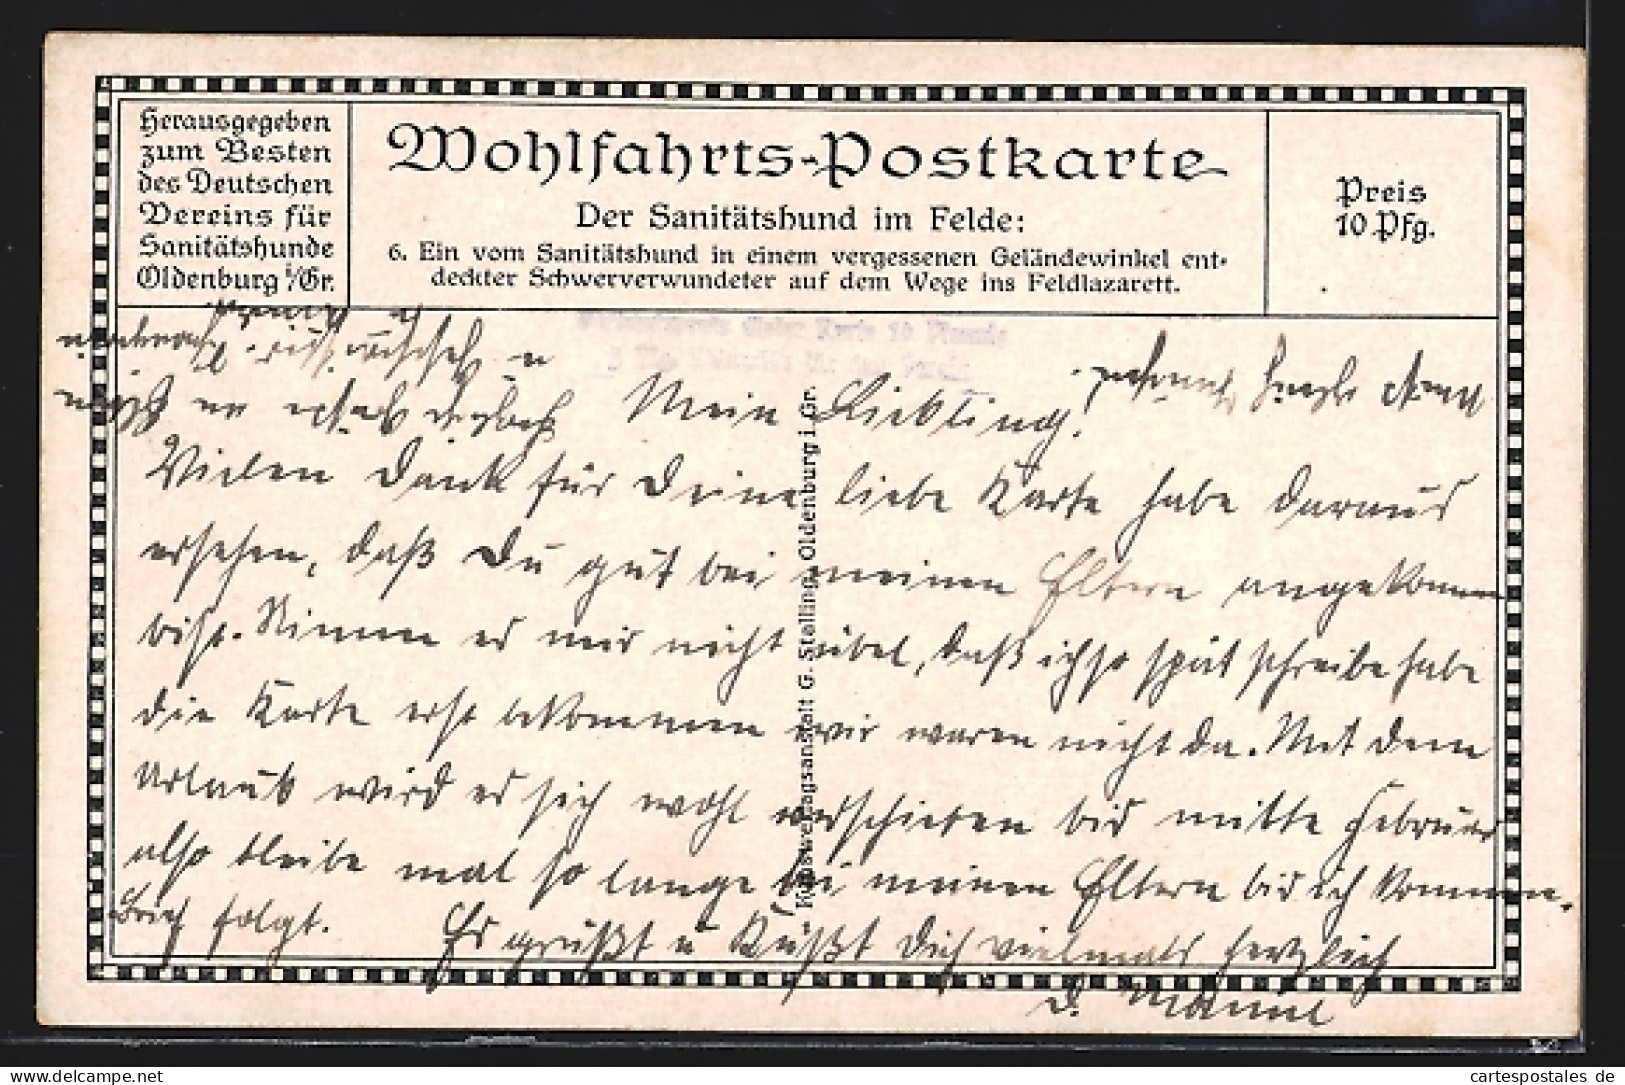 Herausgegeben
zum Besten
des Deutschen
Vereins für
Sanitätshunde
Oldenburg i/Gr.
Wohlfahrts-Postkarte
Der Sanitätshund im Felde:
6. Ein vom Sanitätshund in einem vergessenen Geländewinkel ent-
deckter Schwerverwundeter auf dem Wege ins Feldlazarett.
Preis
10 Pfg.
dieser Karte 10 Pfennig
Mein Liebling!
Vielen Dank für Deine liebe Karte habe daraus
ersehen, daß Du gut bei meinen Eltern angekommen
bist. Nimm es mir nicht übel, daß ich so spät schreibe habe
die Karte erst bekommen wir waren nicht da. Mit dem
Urlaub wird es sich wohl verschieben bis mitte Februar
also bleibe mal so lange bei meinen Eltern bis ich komme.
Brief folgt. Es grüßt u küßt Dich vielmals herzlich
D. Manne
Kunstverlagsanstalt G. Stalling, Oldenburg i. Gr.
cartespostales de